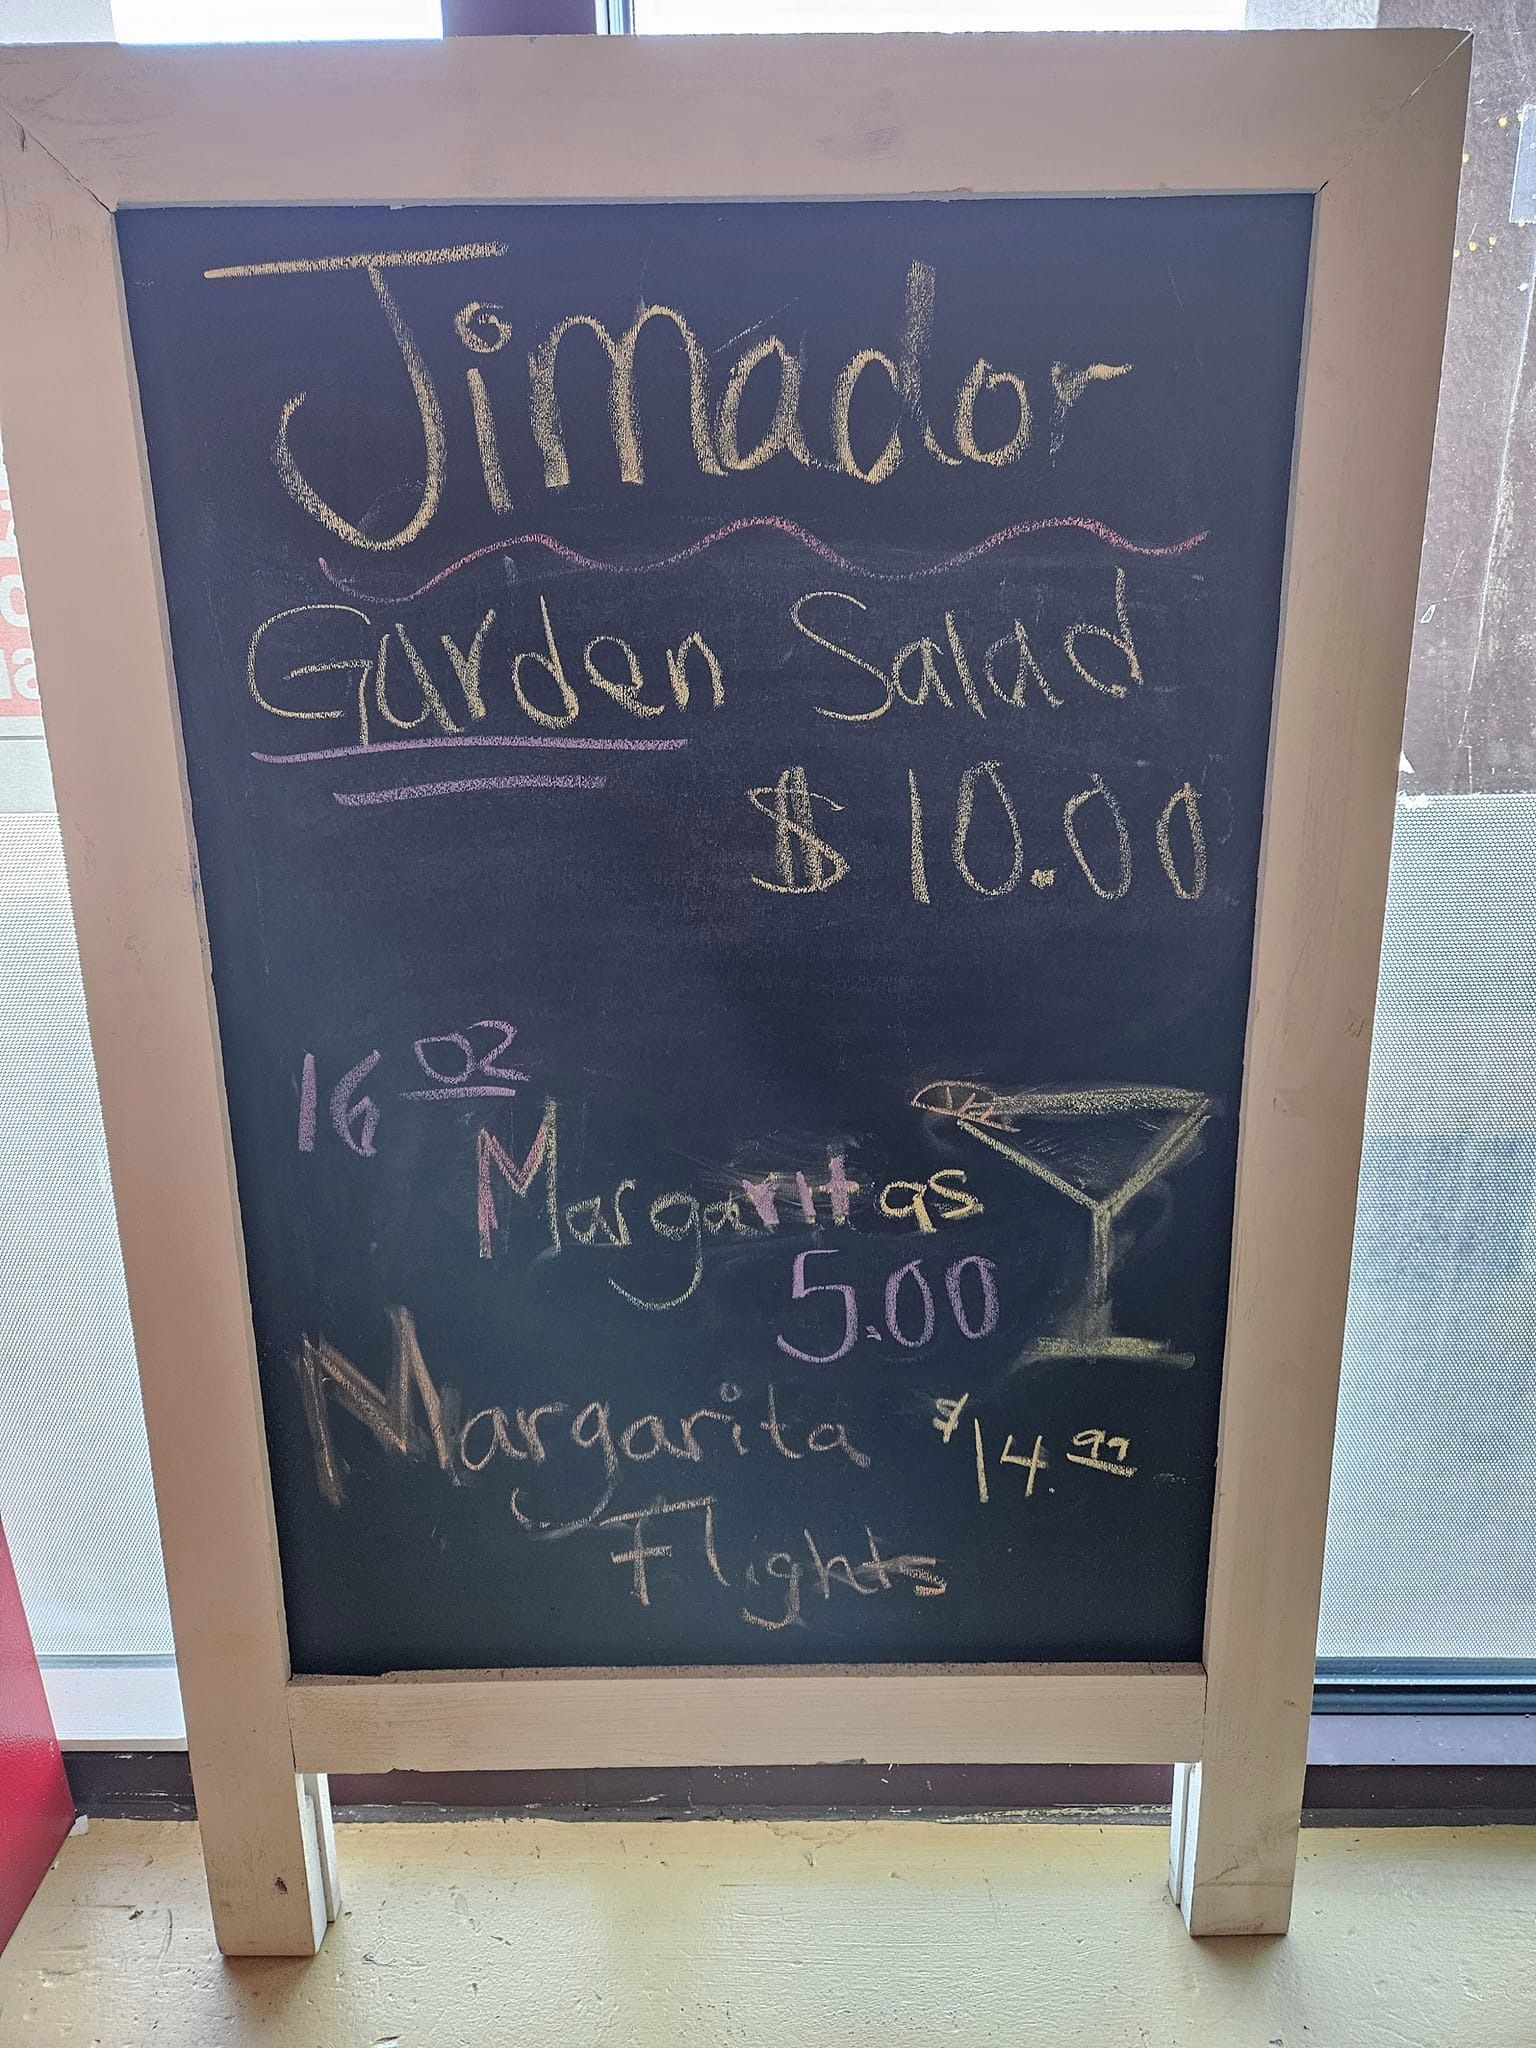 Jimador
Garden Salad
$10.00
16 oz
Margaritas
5.00
Margarita $14.99
Flights